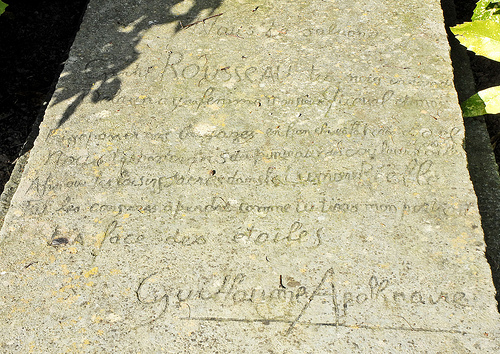 Nous te saluons
Gentil ROUSSEAU tu nous entends
Delaunay sa femme Monsieur Queval et moi
Laisse passer nos bagages en franchise à la porte du ciel
Nous t'apporterons des pinceaux des couleurs des toiles
Afin que tes loisirs sacrés dans la lumière réelle
Tu les consacres à peindre comme tu tiras mon portrait
La face des étoiles
Guillaume Apollinaire